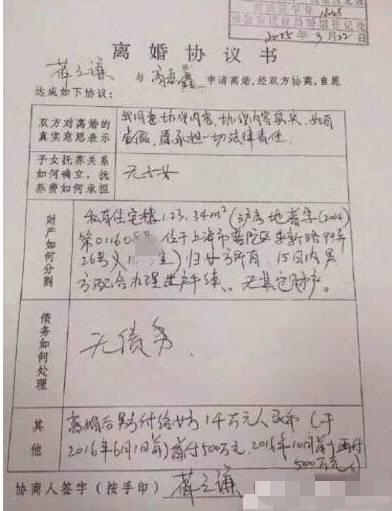 2015年9月22日
离婚协议书
薛之谦 与 高磊鑫 申请离婚,经双方协商,自愿
达成如下协议:
双方对离婚的
真实意思表示
我同意协议内容,协议内容真实,如有
虚假,愿承担一切法律责任.
子女抚养关系
如何确立,抚
养费如何承担
无子女
财产如何分割
私有住宅楼123.34m²(沪房地普字(2014)
第01160 位于上海市普陀区 路99弄
26号 室)归女方所有,15日内男
方配合办理 手续.无其它财产.
债务如何处理
无债务.
其他
离婚后男方付给女方1千万元人民币(于
2016年6月1日前首付500万元,2016年10月前再付
500万元)
协商人签字(按手印) 薛之谦